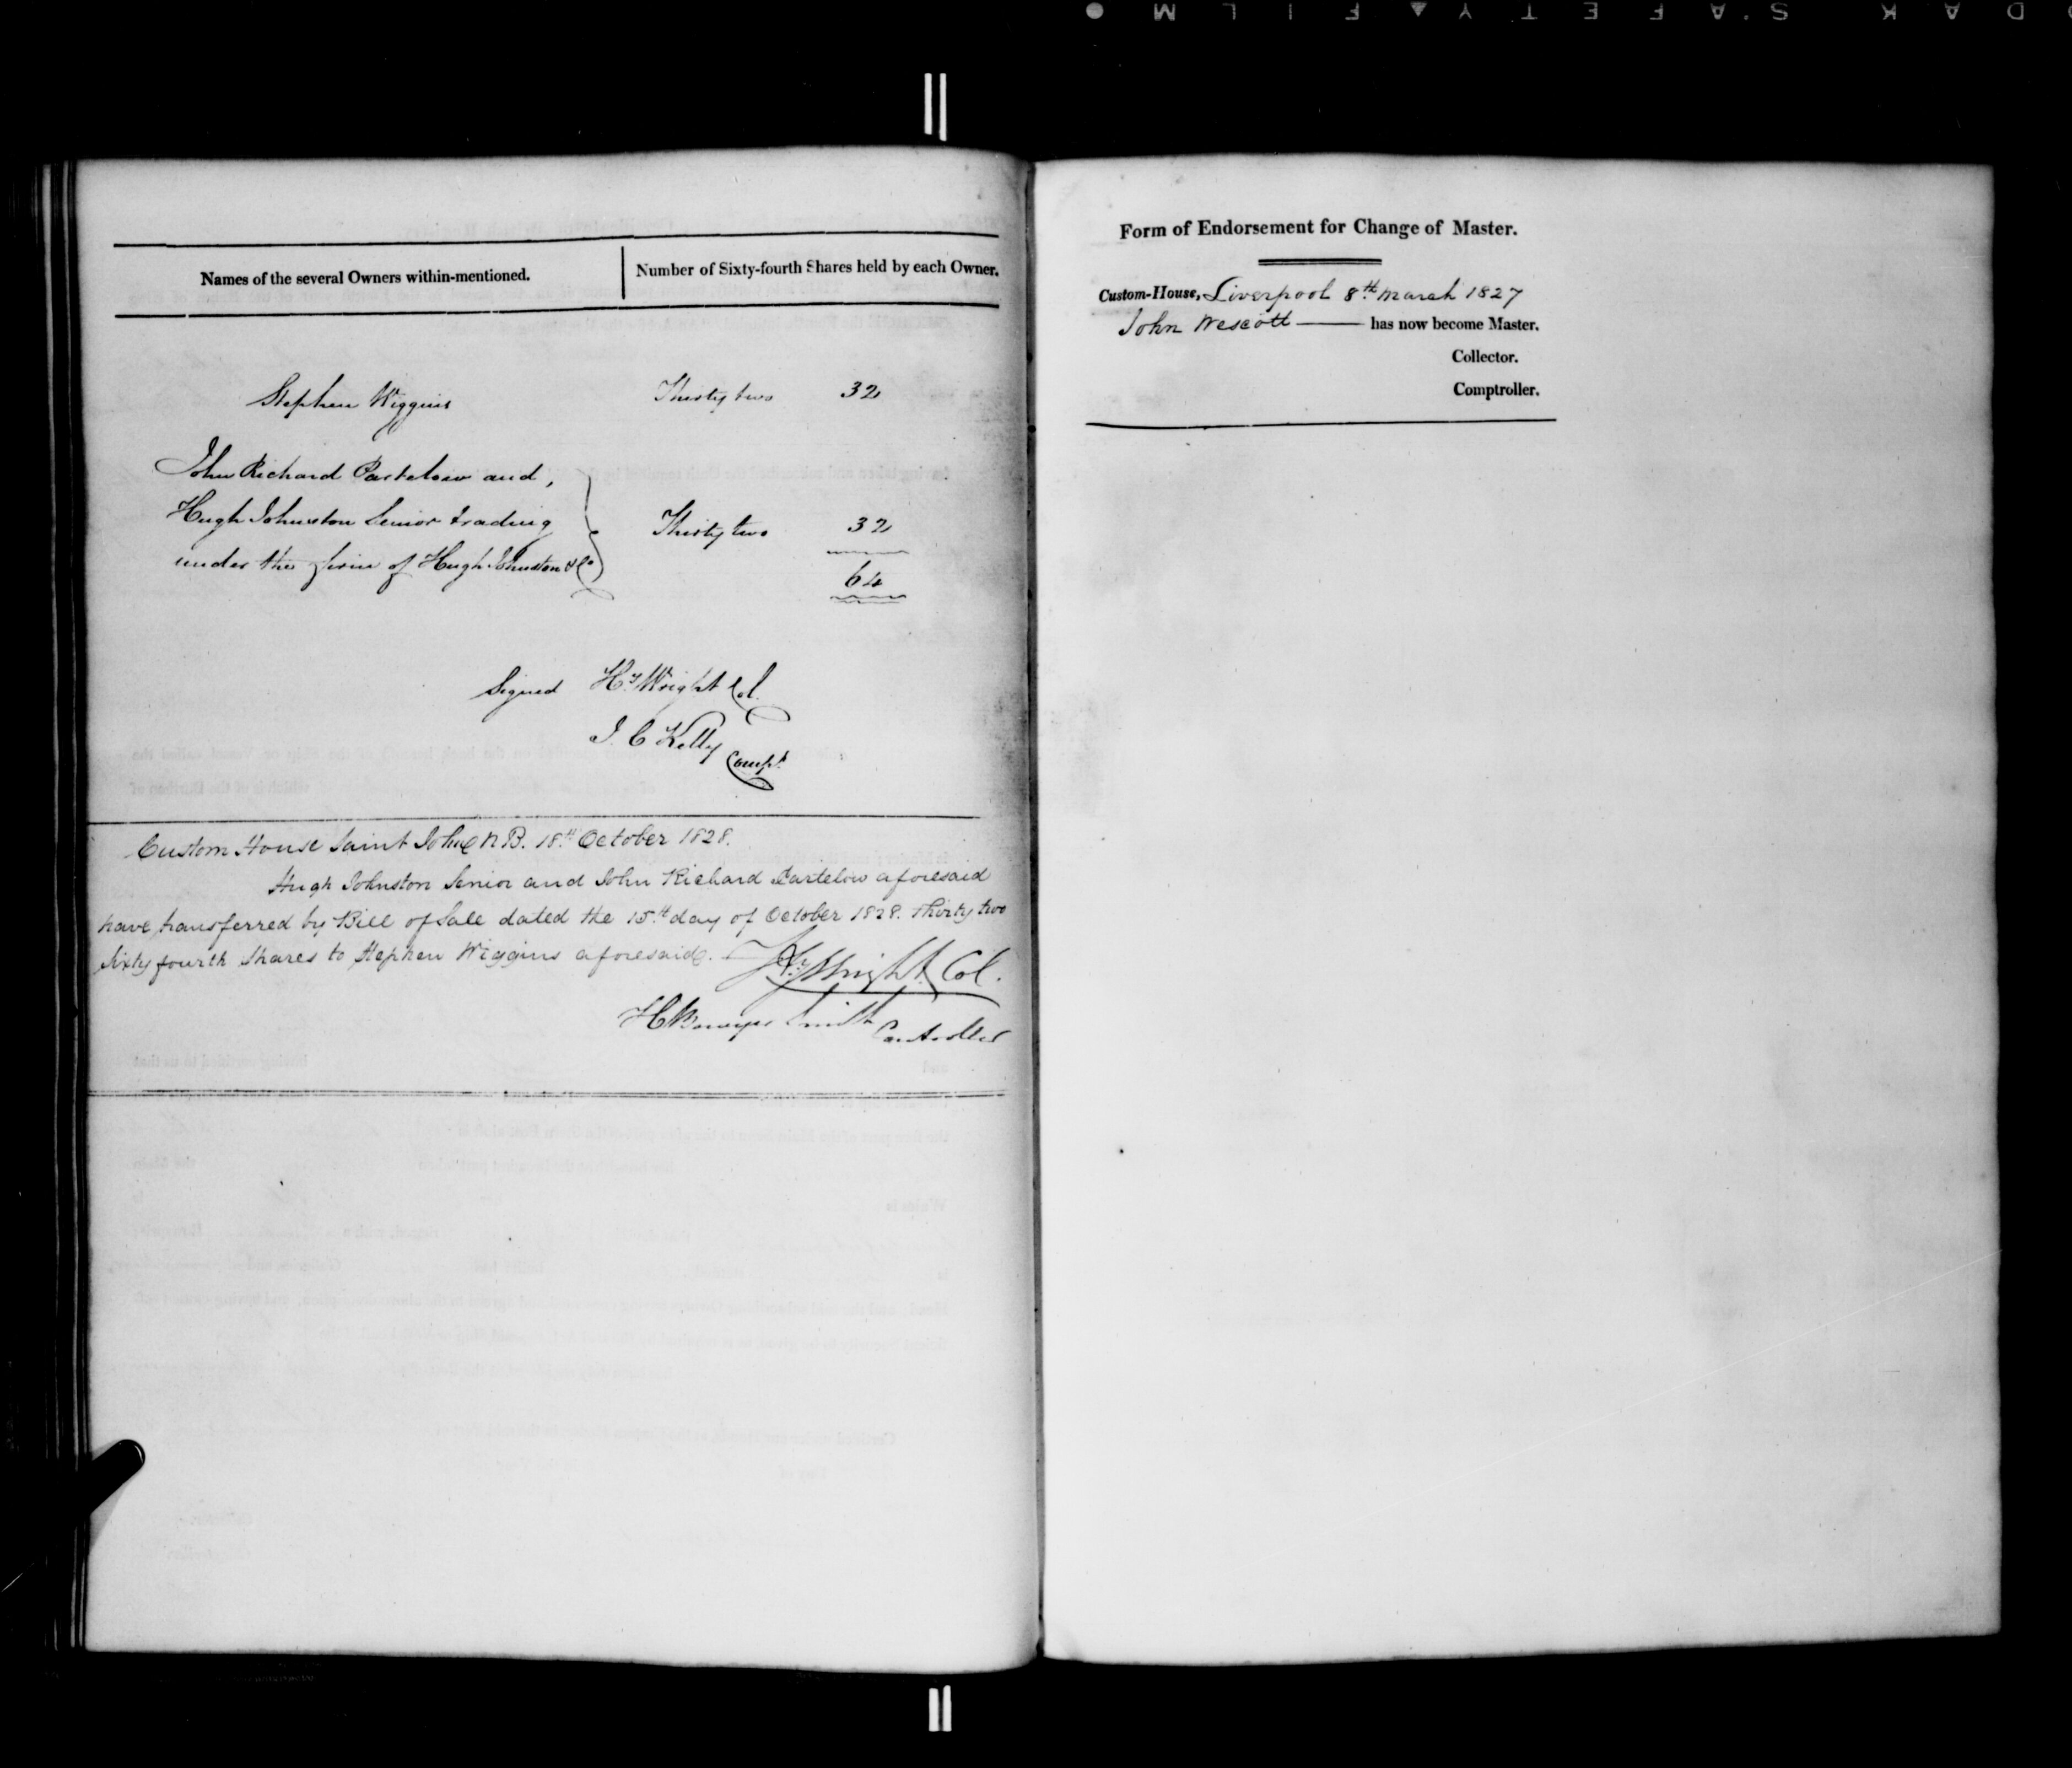 Names of the several Owners within-mentioned.
Number of Sixty-fourth Shares held by each Owner.
Stephen Wiggins Thirty two 32
John Richard Partelow and,
Hugh Johnston Senior trading Thirty two 32
under the firm of Hugh Johnston & Co
64
Signed Hy. Wright Col.
J. C Kelly Compt
Custom House Saint John N B. 18th October 1828.
Hugh Johnston Senior and John Richard Partelow aforesaid
have transferred by Bill of Sale dated the 15th day of October 1828. Thirty two
Sixty fourth Shares to Stephen Wiggins aforesaid.
Hy. Wright Col.
H Bowyer Smith Controller
Form of Endorsement for Change of Master.
Custom-House, Liverpool 8th March 1827
John Wescott — has now become Master.
Collector.
Comptroller.